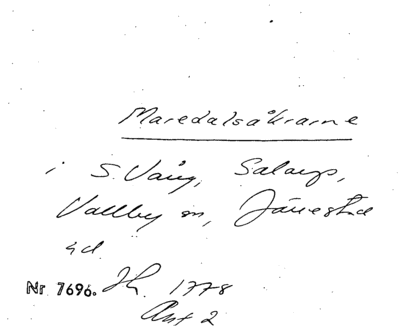 Maredalsåkrarne
i S. Vång, Salarp,
Vallby sn, Järrestad
hd.
Nr 7696. Jh. 1778
Ant 2